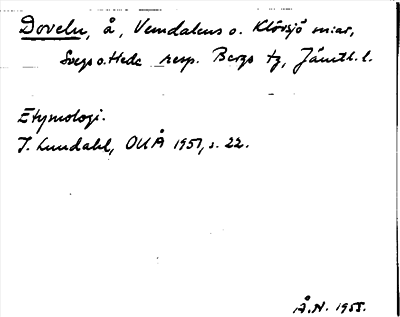 Doveln, å, Vemdalens o. Klövsjö m:ar,
Svegs o. Hede resp. Bergs tg, Jämtl. l.
Etymologi.
I. Lundahl, OUÅ 1951, s. 22.
Å.N. 1955.